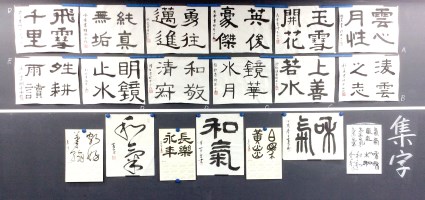 雲心月性
玉雪開花
英俊豪傑
勇往邁進
純真無垢
飛雪千里
凌雲之志
上善若水
鏡華水月
和敬清寂
明鏡止水
晴耕雨讀
集字
咊氣
和氣
長樂永年
和氣